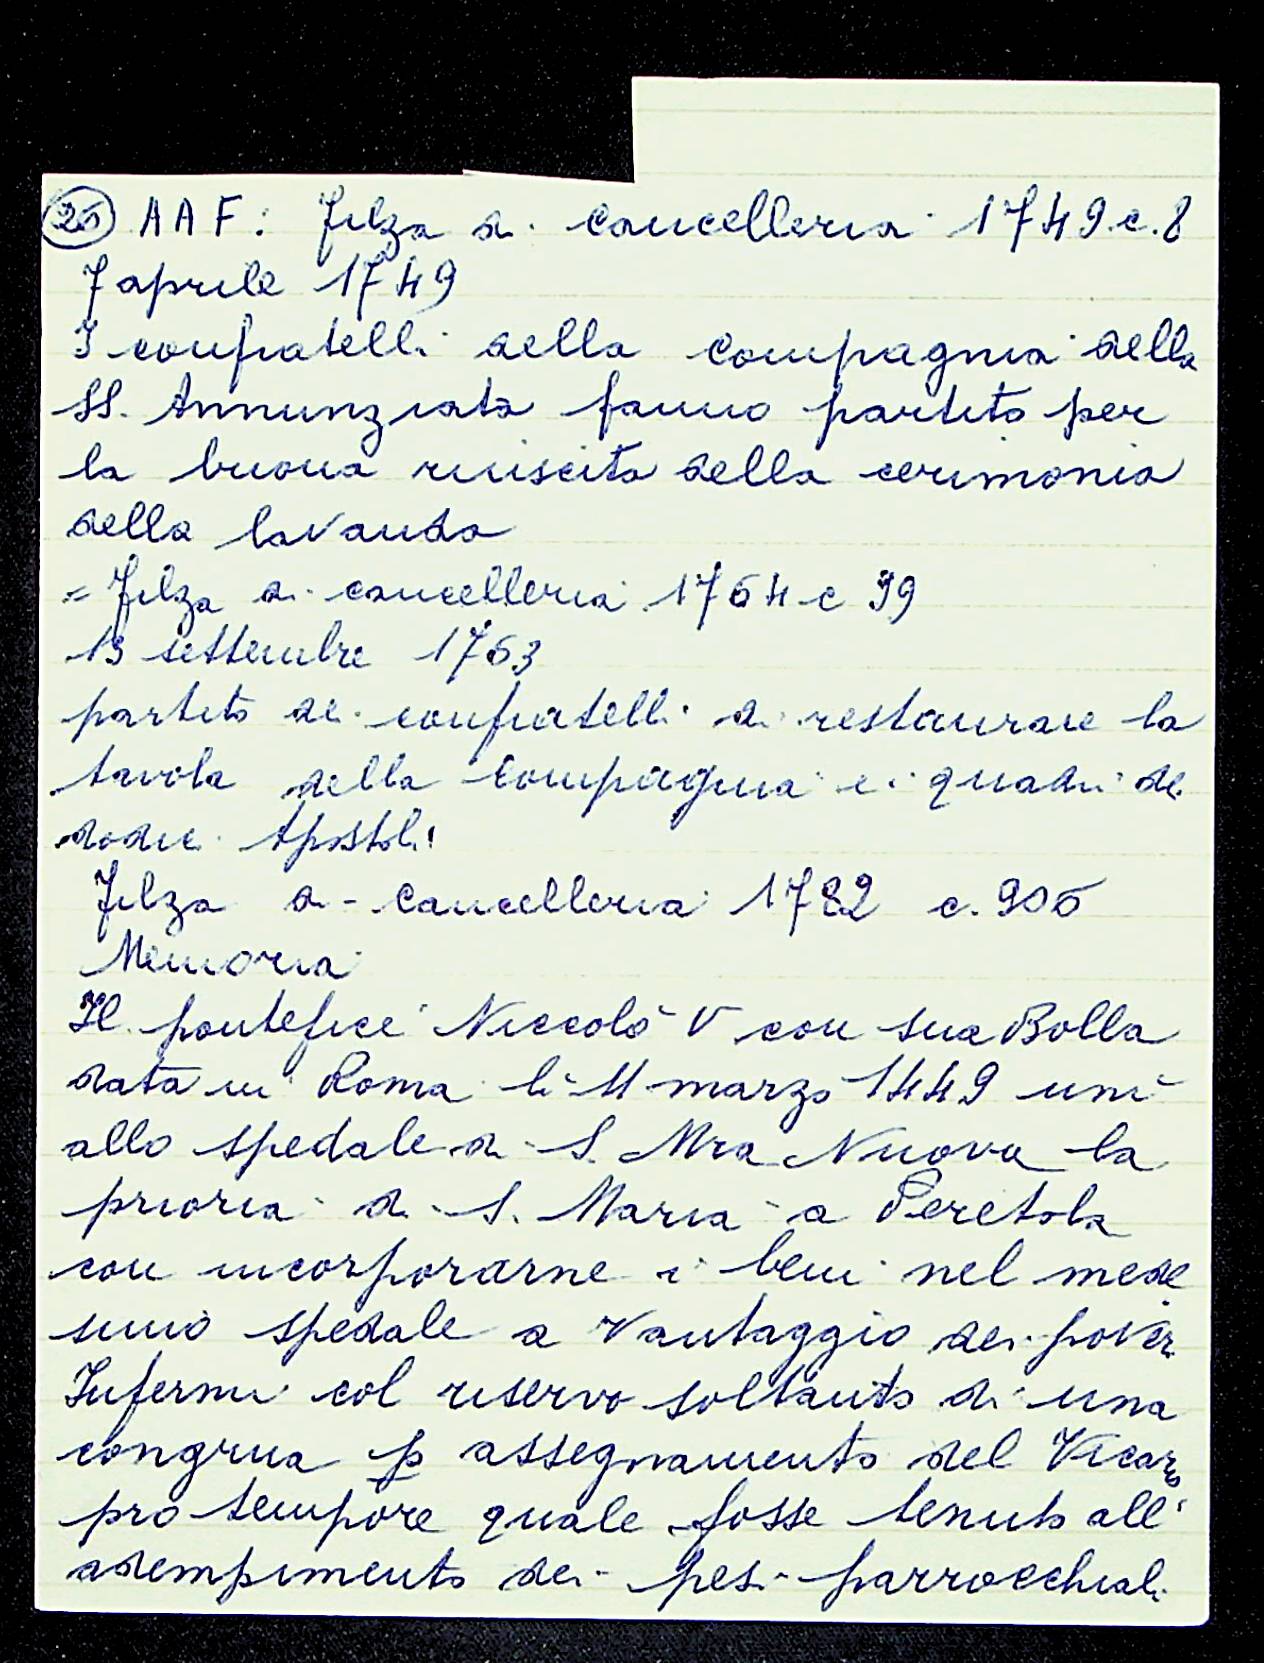 26 AAF: Filza di cancelleria 1749 c. 8
7 aprile 1749
I confratelli della compagnia della
SS. Annunziata fanno partito per
la buona riuscita della cerimonia
della lavanda
= Filza di cancelleria 1764 c 99
13 settembre 1763
partito dei confratelli di restaurare la
tavola della Compagnia e i quadri dei
dodici Apostoli
Filza di cancelleria 1782 c. 906
Memoria
Il pontefice Niccolò V con sua Bolla
data in Roma li 11 marzo 1449 unì
allo spedale di S. Mra Nuova la
prioria di S. Maria a Peretola
con incorporarne i beni nel mede
simo spedale a vantaggio dei poveri
Infermi col riservo soltanto di una
congrua p assegnamento del Vicario
pro tempore quale fosse tenuto all'
adempimento dei pesi parrocchiali